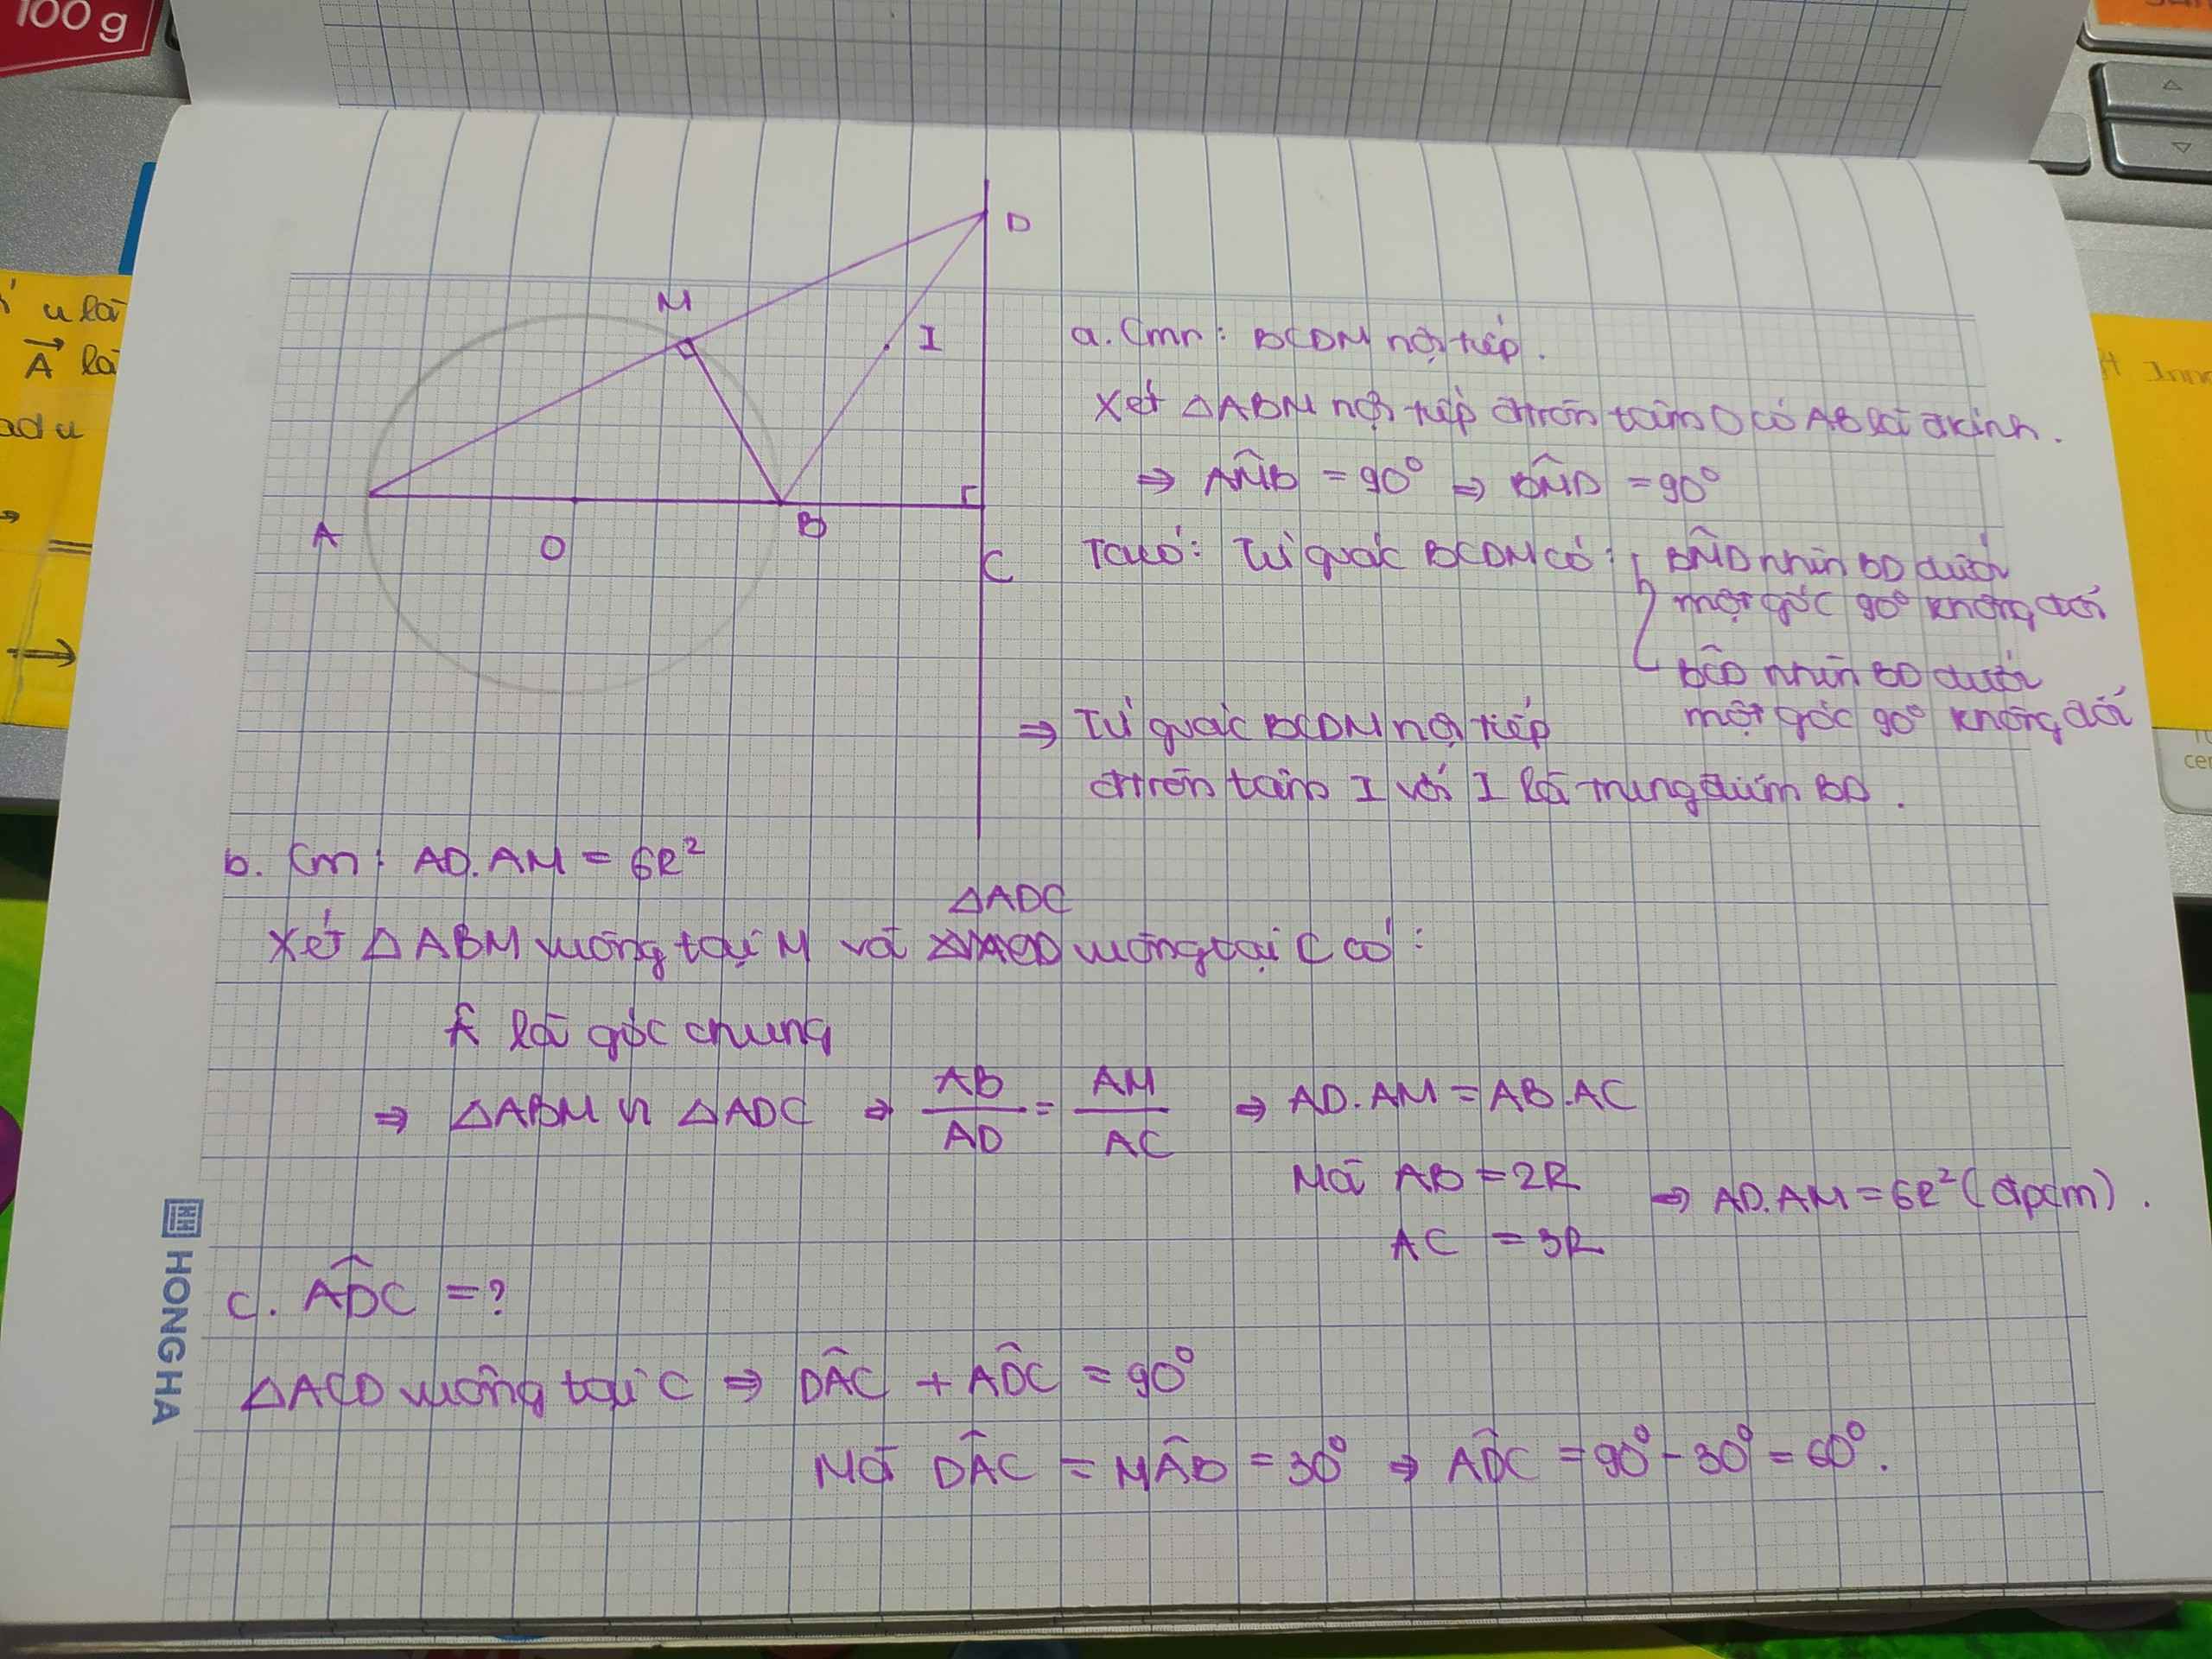 100 g
u là
A là
D
M
I
A
O
B
C
a. Cmr: BCDM nội tiếp.
Xét △ABM nội tiếp đtròn tâm O có AB là đkính.
⇒ AM̂B = 90° ⇒ BM̂D = 90°
Ta có: Tứ giác BCDM có: { BM̂D nhìn BD dưới
một góc 90° không đổi
BĈD nhìn BD dưới
một góc 90° không đổi
⇒ Tứ giác BCDM nội tiếp
đtròn tâm I với I là trung điểm BD.
b. Cm: AD.AM = 6R²
△ADC
Xét △ABM vuông tại M và vuông tại C có:
 là góc chung
⇒ △ABM ∽ △ADC ⇒ AB/AD = AM/AC ⇒ AD.AM = AB.AC
Mà AB = 2R ⇒ AD.AM = 6R² (đpcm).
AC = 3R
c. AD̂C = ?
△ACD vuông tại C ⇒ DÂC + AD̂C = 90°
Mà DÂC = MÂB = 30° ⇒ AD̂C = 90° - 30° = 60°.
HONG HA